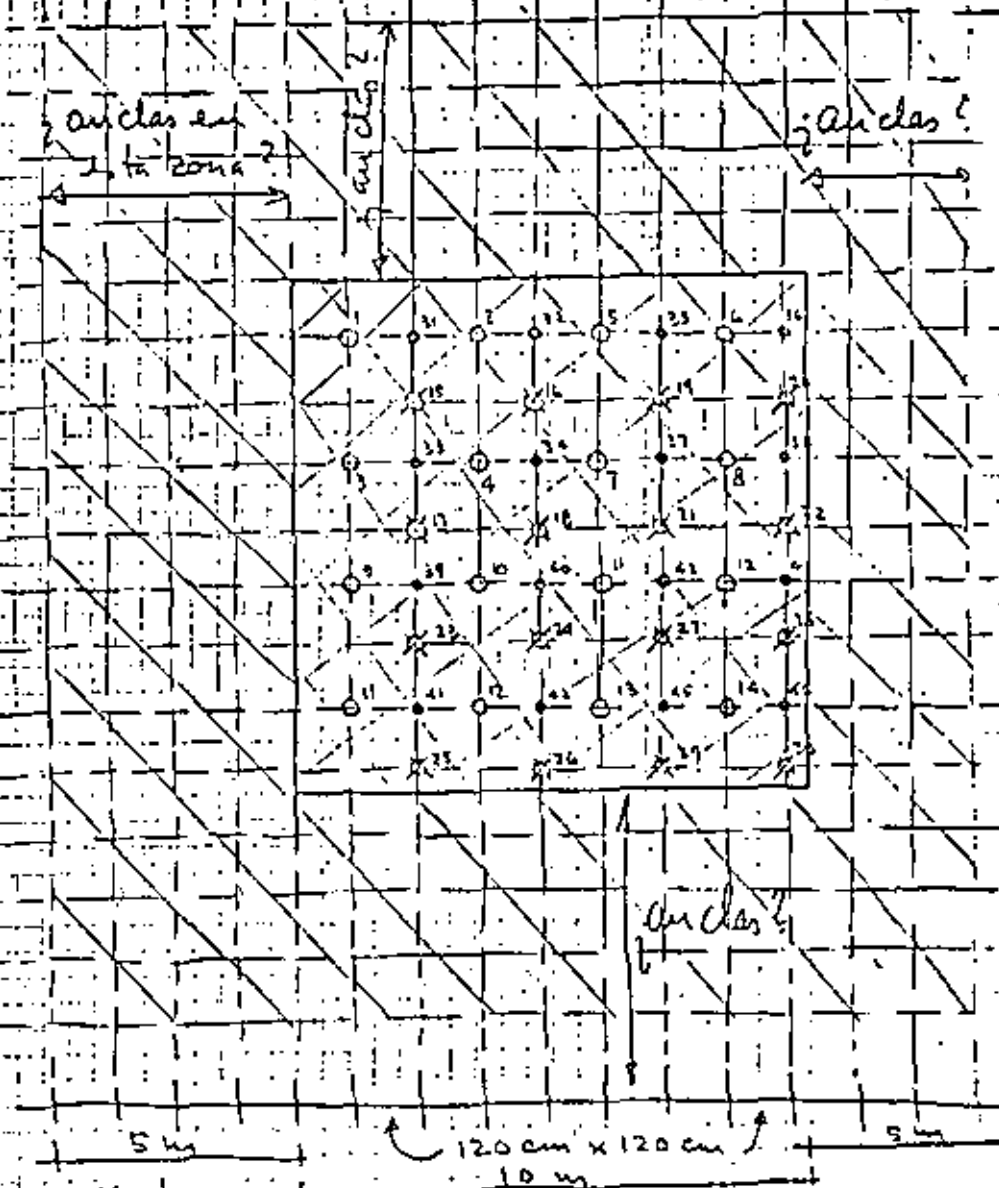 ¿anclas en
esta zona?
¿anclas?
¿anclas?
1 31 2 32 5 35 6 36
15 16 19 20
3 33 4 34 7 37 8 38
17 18 21 22
9 39 10 40 11 43 12
23 24 27 28
11 41 12 42 13 45 14
25 26 29
¿anclas?
5 m 120 cm x 120 cm 5 m
10 m